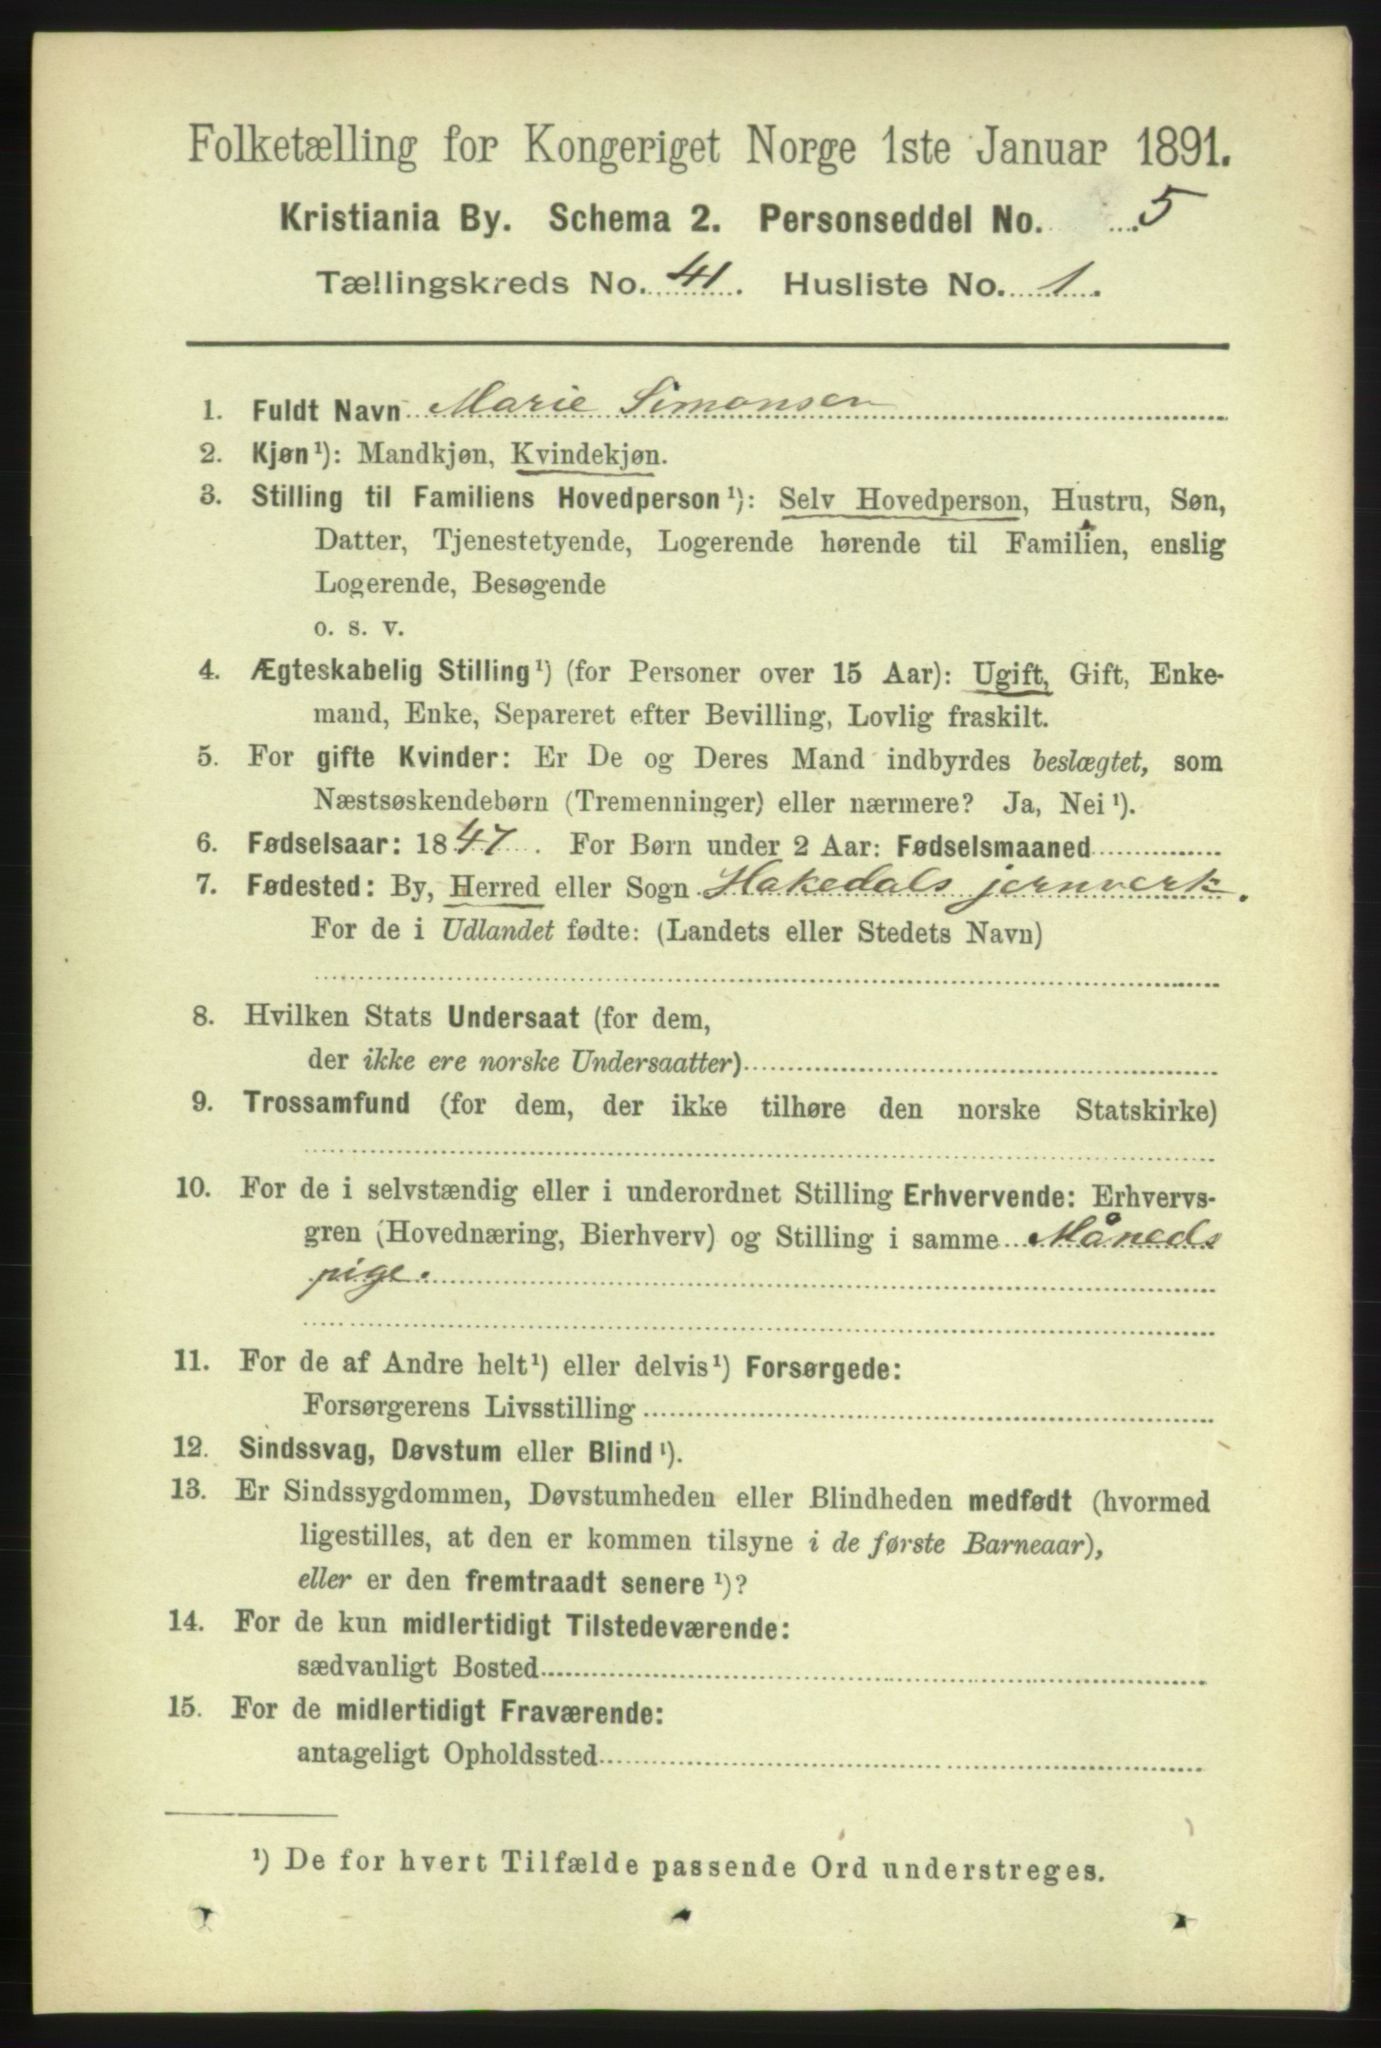 Folketælling for Kongeriget Norge 1ste Januar 1891.
Kristiania By. Schema 2. Personseddel No. 5
Tællingskreds No. 41. Husliste No. 1.
1. Fuldt Navn Marie Simonsen
2. Kjøn¹): Mandkjøn, Kvindekjøn.
3. Stilling til Familiens Hovedperson¹): Selv Hovedperson, Hustru, Søn,
Datter, Tjenestetyende, Logerende hørende til Familien, enslig
Logerende, Besøgende
o. s. v.
4. Ægteskabelig Stilling¹) (for Personer over 15 Aar): Ugift, Gift, Enke-
mand, Enke, Separeret efter Bevilling, Lovlig fraskilt.
5. For gifte Kvinder: Er De og Deres Mand indbyrdes beslægtet, som
Næstsøskendebørn (Tremenninger) eller nærmere? Ja, Nei¹).
6. Fødselsaar: 1847. For Børn under 2 Aar: Fødselsmaaned
7. Fødested: By, Herred eller Sogn Hakedals jernverk.
For de i Udlandet fødte: (Landets eller Stedets Navn)
8. Hvilken Stats Undersaat (for dem,
der ikke ere norske Undersaatter)
9. Trossamfund (for dem, der ikke tilhøre den norske Statskirke)
10. For de i selvstændig eller i underordnet Stilling Erhvervende: Erhvervs-
gren (Hovednæring, Bierhverv) og Stilling i samme Måneds
pige.
11. For de af Andre helt¹) eller delvis¹) Forsørgede:
Forsørgerens Livsstilling
12. Sindssvag, Døvstum eller Blind¹).
13. Er Sindssygdommen, Døvstumheden eller Blindheden medfødt (hvormed
ligestilles, at den er kommen tilsyne i de første Barneaar),
eller er den fremtraadt senere¹)?
14. For de kun midlertidigt Tilstedeværende:
sædvanligt Bosted
15. For de midlertidigt Fraværende:
antageligt Opholdssted
¹) De for hvert Tilfælde passende Ord understreges.